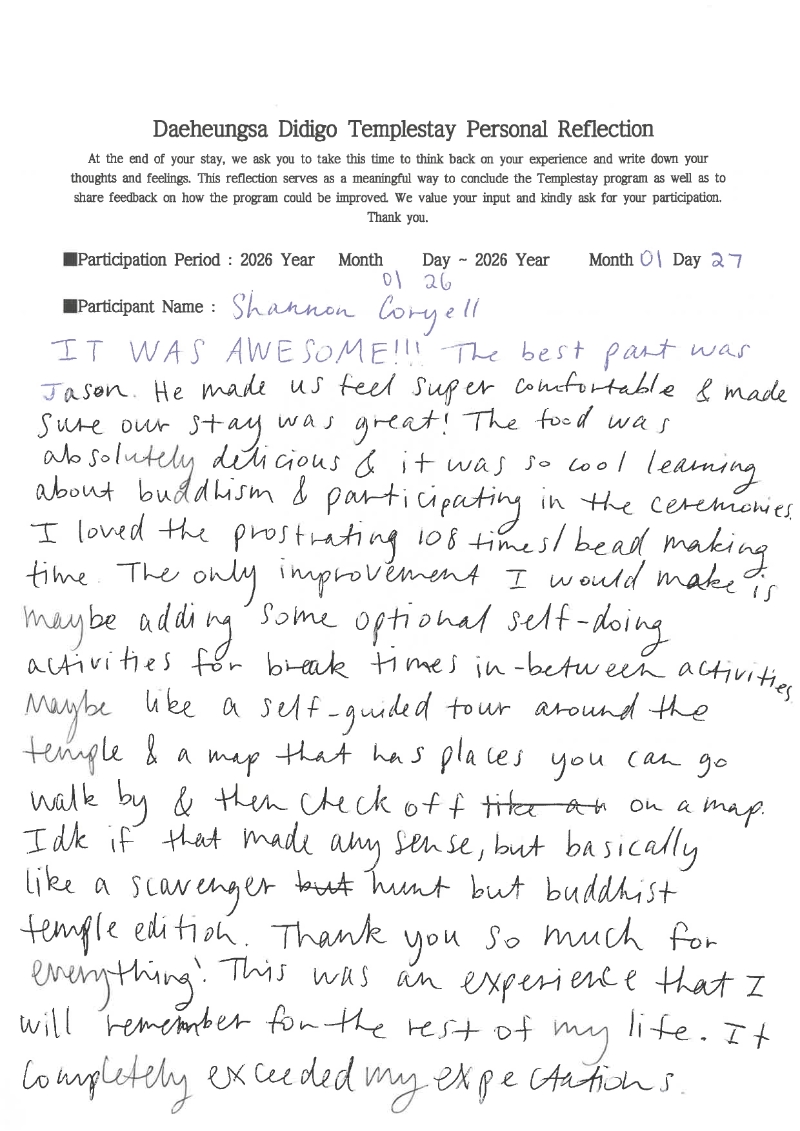 Daeheungsa Didigo Templestay Personal Reflection
At the end of your stay, we ask you to take this time to think back on your experience and write down your
thoughts and feelings. This reflection serves as a meaningful way to conclude the Templestay program as well as to
share feedback on how the program could be improved. We value your input and kindly ask for your participation.
Thank you.
■Participation Period : 2026 Year Month Day ~ 2026 Year Month 01 Day 27
01 26
■Participant Name : Shannon Coryell
IT WAS AWESOME!!! The best part was
Jason. He made us feel super comfortable & made
sure our stay was great! The food was
absolutely delicious & it was so cool learning
about buddhism & participating in the ceremonies.
I loved the prostrating 108 times/bead making
time. The only improvement I would make is
maybe adding some optional self-doing
activities for break times in-between activities
Maybe like a self-guided tour around the
temple & a map that has places you can go
walk by & then check off like an on a map.
Idk if that made any sense, but basically
like a scavenger but hunt but buddhist
temple edition. Thank you so much for
everything! This was an experience that I
will remember for the rest of my life. It
completely exceeded my expectations.